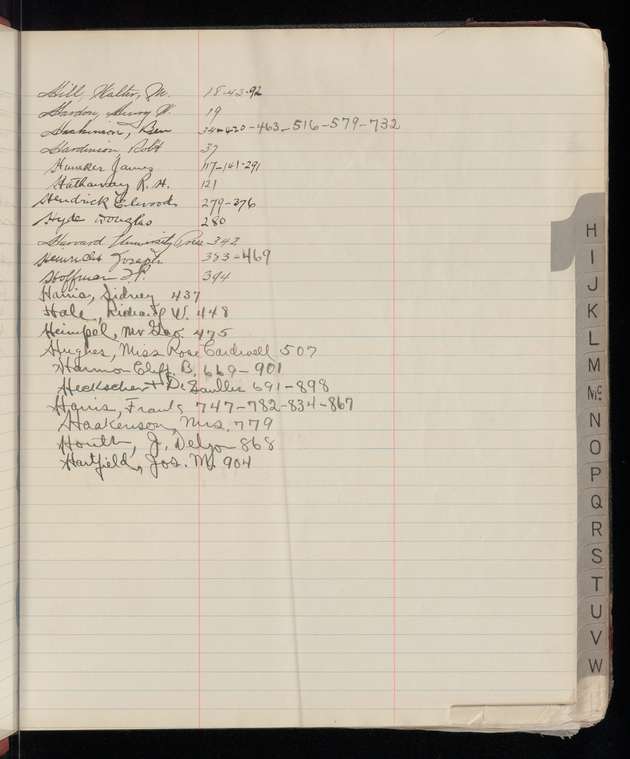 Hill, Walter, M. 18-43-92
Hardon, Henry W. 19
Haskinson, Ben 34-420-463-516-579-732
Hardinson Robt 37
Huneker James 117-141-291
Hathaway R. H. 121
Hendrick Elwood 279-376
Hyde Douglas 280
Harvard University Press 342
Heinrich Joseph 353-469
Hoffman F. P. 394
Harris, Sidney 437
Hale, Richard W. 448
Heimpel, Mr Geo. 475
Hughes, Miss Rose Cardwell 507
Harmon Cliff. B. 669-901
Heckscher + De Saulles 691-898
Harris, Frank 747-782-834-867
Haakenson, Mrs. 779
Houth, J. 868
Hartfield, Jos. M. 904
H
I
J
K
L
M
Mc
N
O
P
Q
R
S
T
U
V
W